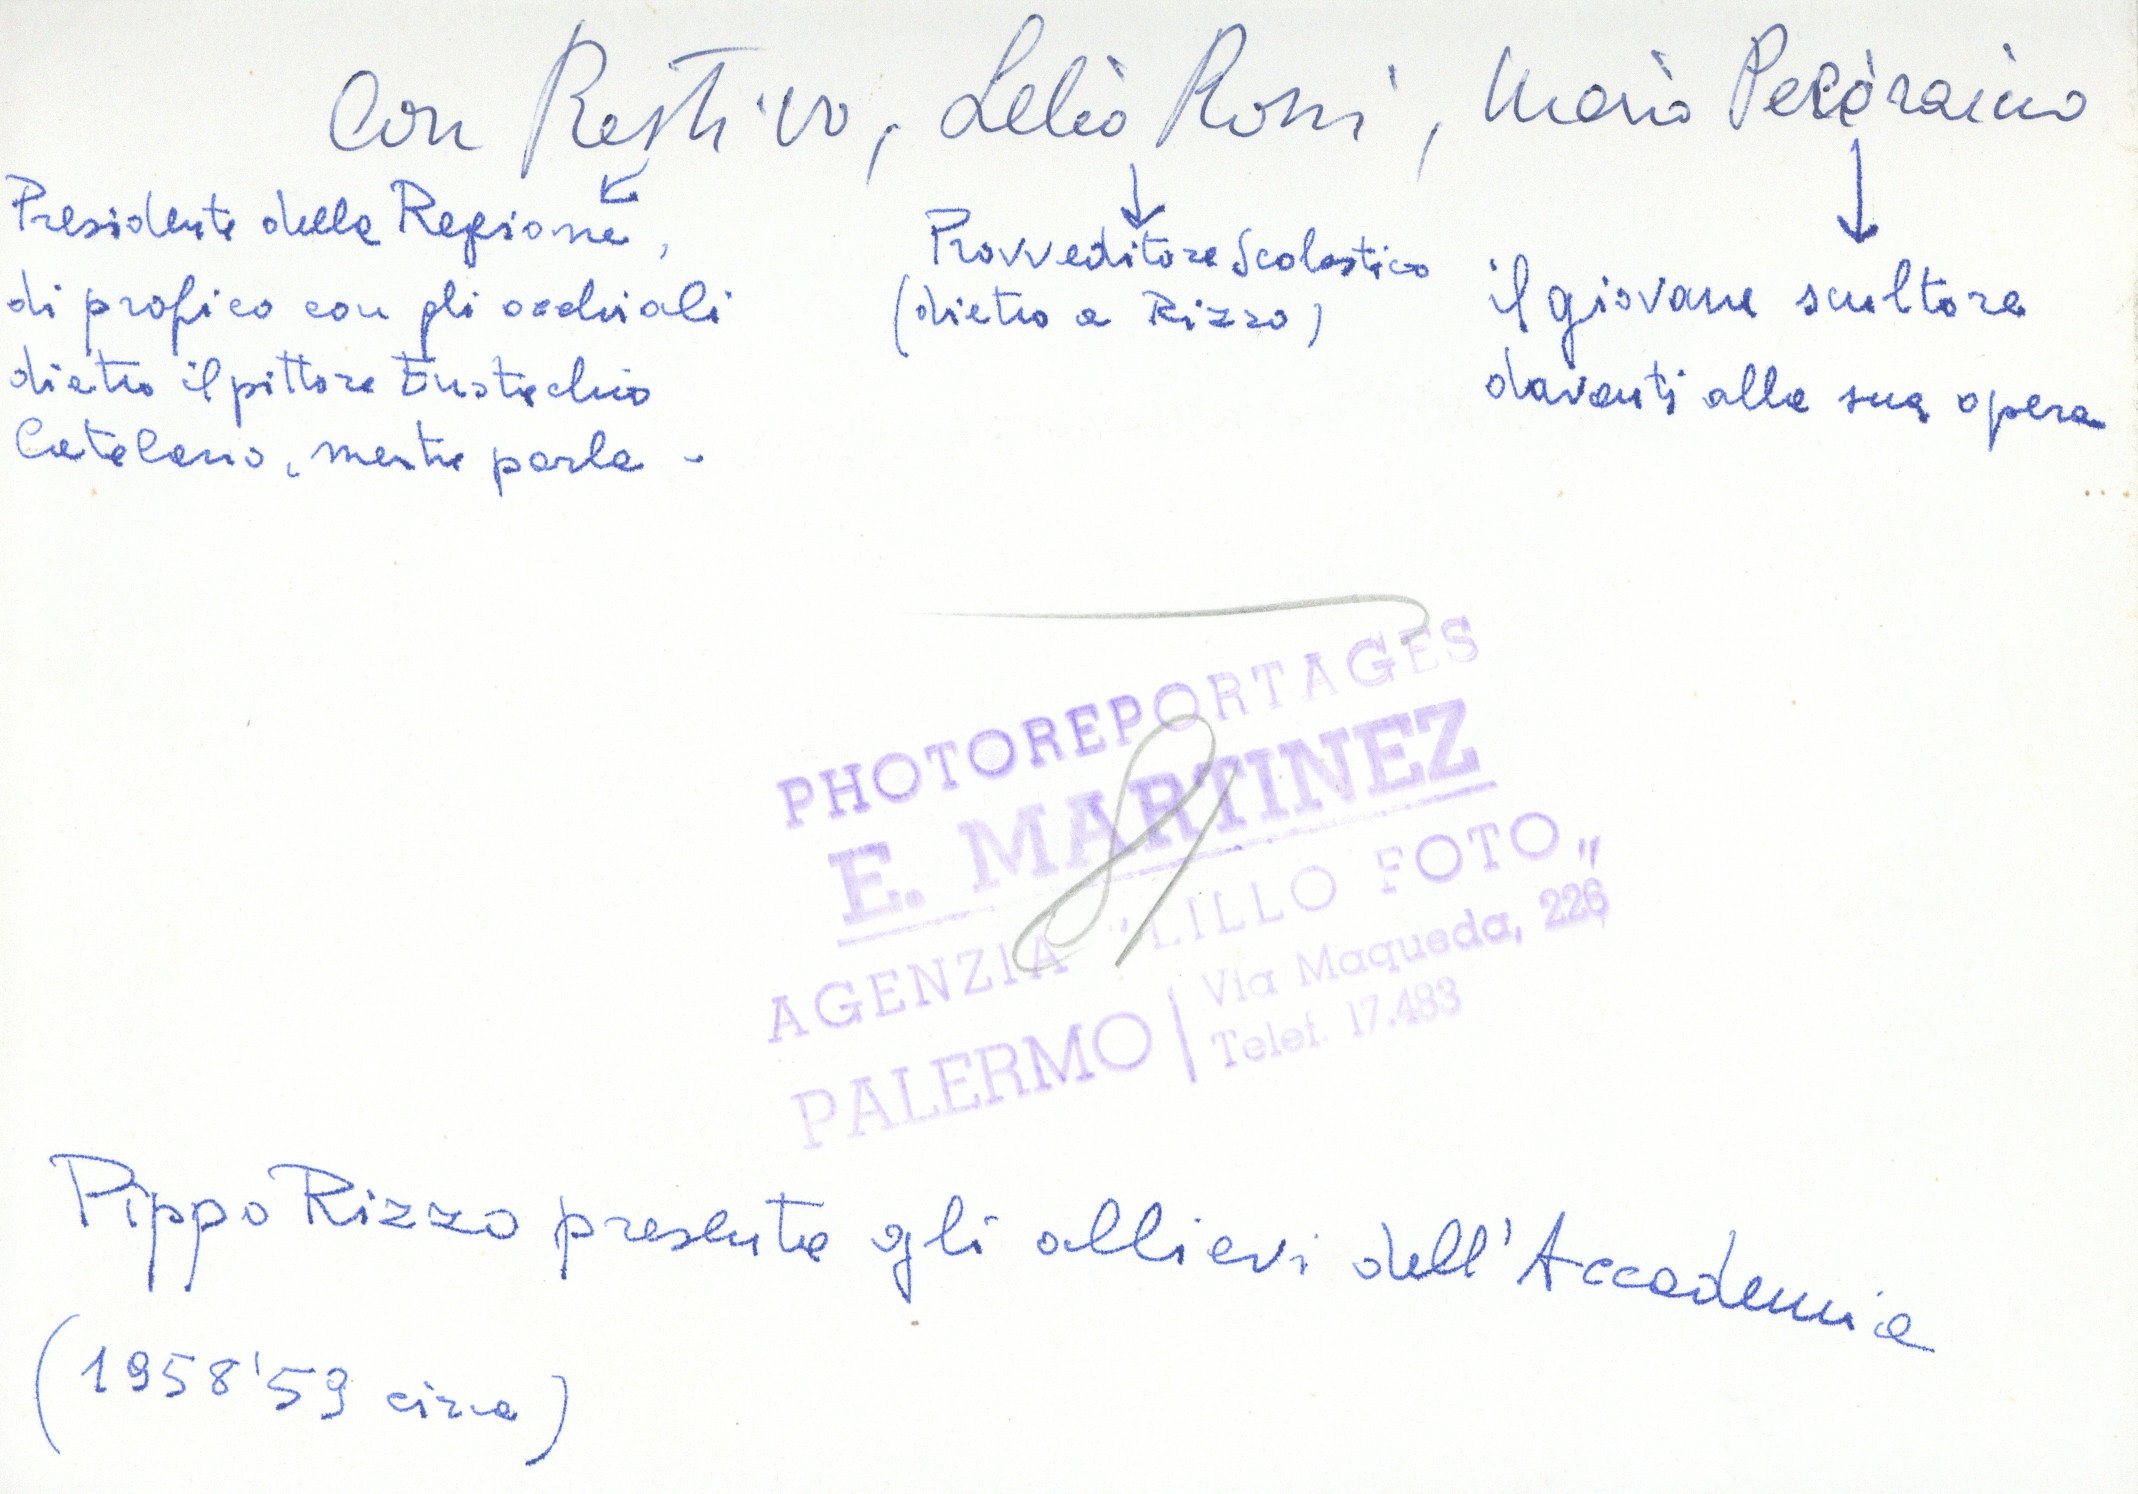 Con Restivo, Lelio Rossi, Mario Pecoraino
Presidente della Regione,
di profico con gli occhiali
dietro il pittore Eustachio
Catalano, mentre parla -
Provveditore Scolastico
(dietro a Rizzo)
il giovane scultore
davanti alla sua opera
PHOTOREPORTAGES
E. MARTINEZ
AGENZIA "LILLO FOTO„
PALERMO | Via Maqueda, 226
Telef. 17.483
Pippo Rizzo presenta gli allievi dell'Accademia
(1958'59 circa)